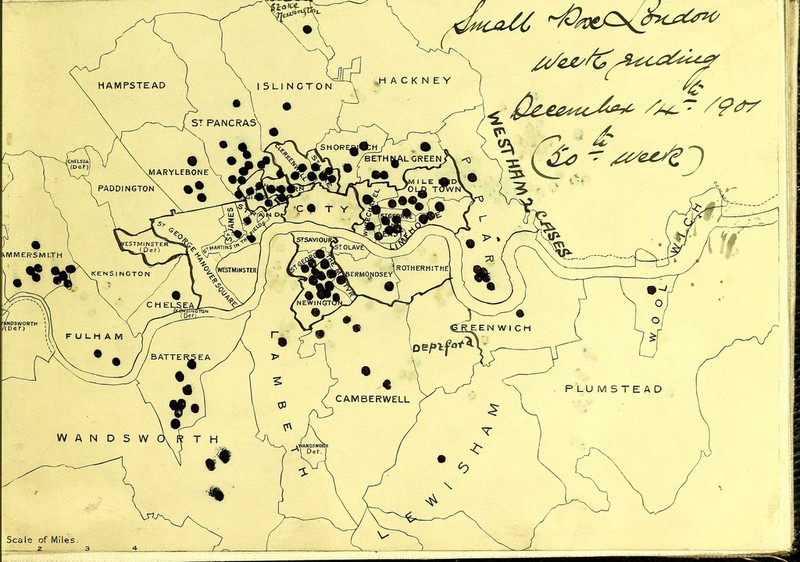 Small Pox London
Week ending
December 14th 1901
(50th week)
STOKE
Newington
HAMPSTEAD
ISLINGTON
HACKNEY
ST PANCRAS
SHOREDITCH
CLERKENWELL
BETHNAL GREEN
CHELSEA
(Det)
MARYLEBONE
PADDINGTON
MILE END
OLD TOWN
POPLAR
WEST HAM 2 CASES
CITY
STRAND
ST JAMES
ST MARTINS IN THE FIELDS
LIMEHOUSE
WESTMINSTER
(Det)
ST GEORGE HANOVER SQUARE
WESTMINSTER
ST SAVIOURS
ST OLAVE
BERMONDSEY
ROTHERHITHE
HAMMERSMITH
KENSINGTON
CHELSEA
KENSINGTON
(Det)
NEWINGTON
WOOLWICH
WANDSWORTH
(Det)
FULHAM
BATTERSEA
LAMBETH
GREENWICH
Deptford
CAMBERWELL
PLUMSTEAD
WANDSWORTH
WANDSWORTH
Det.
LEWISHAM
Scale of Miles.
2 3 4